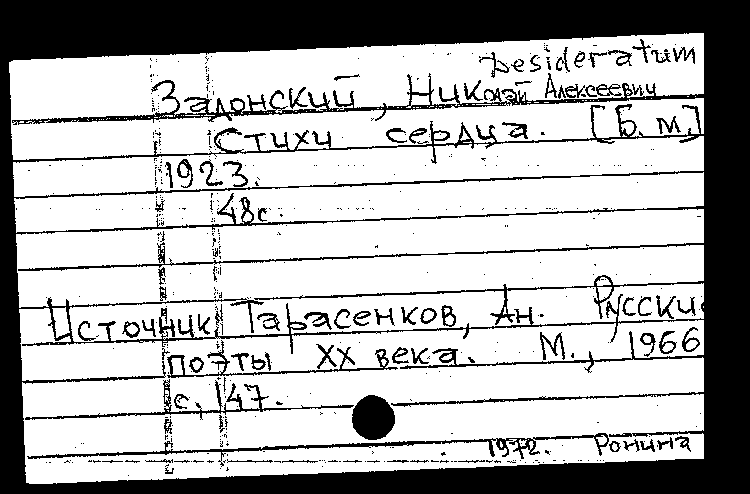 Desideratum
Задонский, Николай Алексеевич
Стихи сердца. [Б. м.]
1923.
48с.
Источник: Тарасенков, Ан. Русские
поэты XX века. М., 1966
с. 147.
1972. Ронина